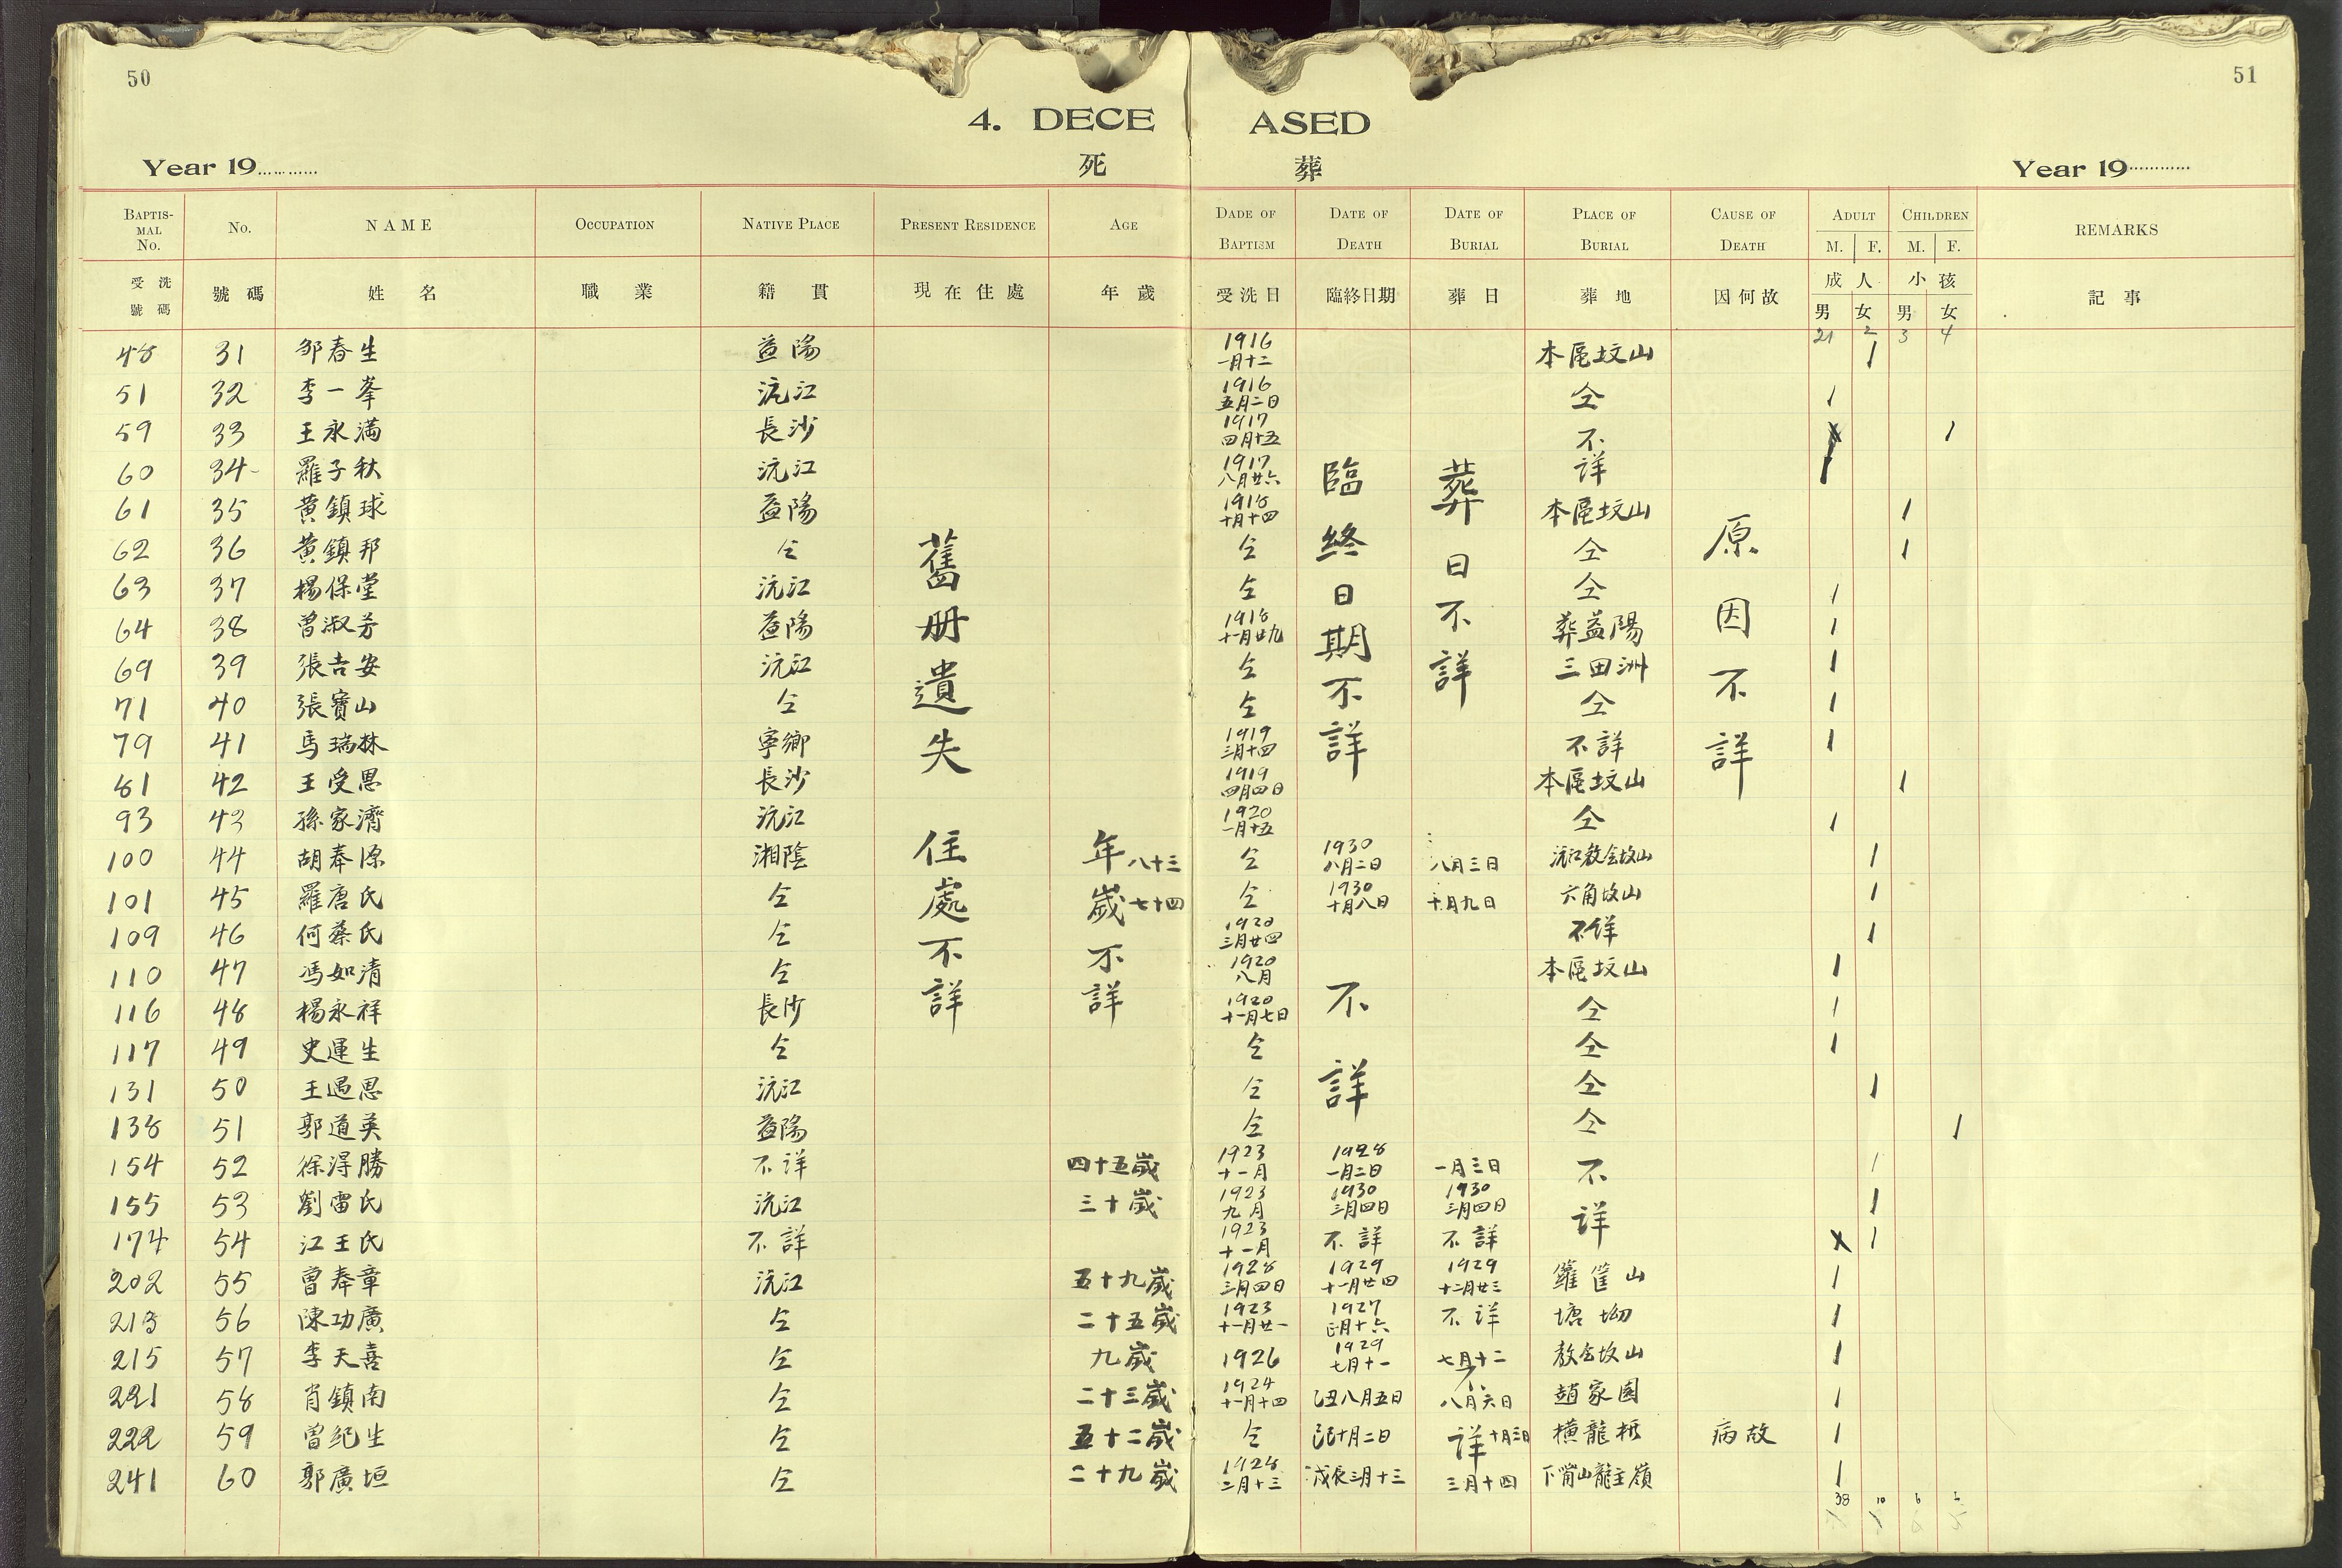 50
51
4. DECEASED
死 葬
Year 19............
Year 19............
BAPTISMAL No. No. NAME OCCUPATION NATIVE PLACE PRESENT RESIDENCE AGE DADE OF BAPTISM DATE OF DEATH DATE OF BURIAL PLACE OF BURIAL CAUSE OF DEATH ADULT M. F. CHILDREN M. F. REMARKS
受洗號碼 號碼 姓名 職業 籍貫 現在住處 年歲 受洗日 臨終日期 葬日 葬地 因何故 成人 男 女 小孩 男 女 記事
21 2 3 4
48 31 邹春生 益陽 1916 一月十二 本區坟山 1
51 32 李一峯 沅江 1916 五月二日 仝 1
59 33 王永満 長沙 1917 四月十五 不 1
60 34 羅子秋 沅江 1917 八月廿六 詳 1
61 35 黄鎮球 益陽 1918 十月十四 本區坟山 1
62 36 黄鎮邦 仝 仝 仝 1
63 37 楊保堂 沅江 仝 仝 1
64 38 曾淑芳 益陽 1918 十一月廿九 葬益陽 1
69 39 張吉安 沅江 仝 三田洲 1
71 40 張寳山 仝 仝 仝 1
79 41 馬瑞林 寧鄉 1919 三月十四 不詳 1
81 42 王受恩 長沙 1919 四月四日 本區坟山 1
93 43 孫家濟 沅江 1920 一月十五 仝 1
100 44 胡奉源 湘陰 八十三 仝 1930 八月二日 八月三日 沅江教会坟山 1
101 45 羅唐氏 仝 七十四 仝 1930 十月八日 十月九日 六角坟山 1
109 46 何蔡氏 仝 1920 三月廿四 不詳 1
110 47 馮如清 仝 1920 八月 本區坟山 1
116 48 楊永祥 長沙 1920 十一月七日 仝 1
117 49 史運生 仝 仝 仝 1
131 50 王遇恩 沅江 仝 仝 1
138 51 郭道英 益陽 仝 仝 1
154 52 徐得勝 不詳 四十五歲 1923 十一月 1928 一月二日 一月三日 不 1
155 53 劉雷氏 沅江 三十歲 1923 九月 1930 三月四日 1930 三月四日 詳 1
174 54 江王氏 不詳 1923 十一月 不詳 不詳 X 1
202 55 曾奉章 沅江 五十九歲 1928 三月四日 1929 十一月廿四 1929 十二月廿三 山 1
213 56 陳功廣 仝 二十五歲 1923 十一月廿一 1927 正月十六 不詳 塘坳 1
215 57 李天喜 仝 九歲 1926 1929 七月十一 七月十二 教会坟山 1
221 58 肖鎮南 仝 二十三歲 1924 十一月十四 乙丑八月五日 八月六日 趙家園 1
222 59 曾紀生 仝 五十二歲 仝 十月二日 詳 十月三日 橫龍 病故 1
241 60 郭廣垣 仝 二十九歲 1928 二月十三 戊辰三月十三 三月十四 龍主嶺 1
舊册遺失住處不詳
年歲不詳
臨終日期不詳
不詳
葬日不詳
原因不詳
38 10 6